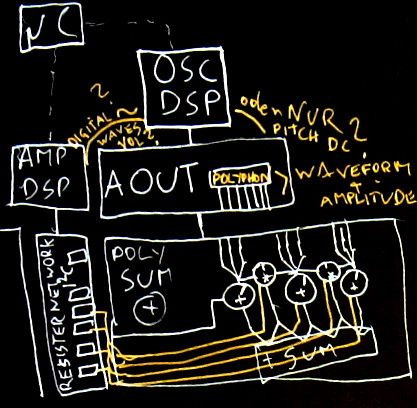 NC
OSC
DSP
?
DIGITAL
WAVES?
VOL?
oder NUR
PITCH DC?
AMP
DSP
AOUT
POLYPHON
WAVEFORM
+
AMPLITUDE
REGISTER NETWORK
I²C
POLY
SUM
+
+ + + + +
+ SUM